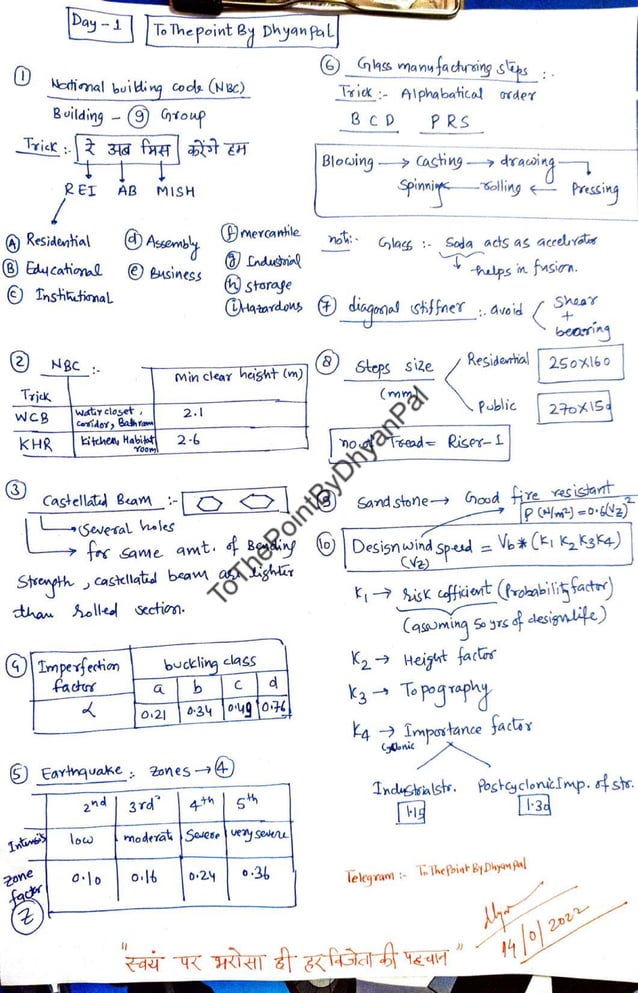 Day-1
To The point By DhyanPal
① National building code (NBC)
Building - ⑨ Group
Trick :- रे अब मिस करेंगे हम
REI AB MISH
Ⓐ Residential
Ⓑ Educational
ⓒ Institutional
ⓓ Assembly
ⓔ Business
ⓕ mercantile
ⓖ Industrial
ⓗ storage
ⓘ Hazardous
② NBC :-
Trick
Min clear height (m)
WCB water closet, coridor, Bathroom 2.1
KHR kitchen, Habitat room 2.6
③ Castellated Beam :-
→ Several holes
→ for same amt. of Bending
Strength, castellated beam are lighter
than rolled section.
④ Imperfection factor
buckling class
a b c d
α 0.21 0.34 0.49 0.76
⑤ Earthquake : Zones → ④
2nd 3rd 4th 5th
Intensity low moderate Severe very severe
Zone factor 0.10 0.16 0.24 0.36
Z
⑥ Glass manufacturing steps :-
Trick :- Alphabatical order
B C D P R S
Blowing → casting → drawing
Spinning ← rolling ← Pressing
not :- Glass :- Soda acts as accelerator
↓ helps in fusion.
⑦ diagonal stiffner :- avoid
Shear
+
bearing
⑧ Steps size
(mm)
Residential 250×160
Public 270×150
no of Tread = Riser-1
⑨ Sandstone → Good fire resistant
P (N/m²) = 0.6(Vz)²
⑩ Design wind speed = Vb * (K1 K2 K3 K4)
(Vz)
K1 → risk cofficient (Probability factor)
(assuming 50 yrs of design life)
K2 → Height factor
K3 → Topography
K4 → Importance factor
Cyclonic
Industrial str. Post cyclonic Imp. of str.
1.15 1.30
Telegram :- To The Point By Dhyan Pal
14/0/2022
"स्वयं पर भरोसा ही हर विजेता की पहचान"
ToThePointByDhyanPal